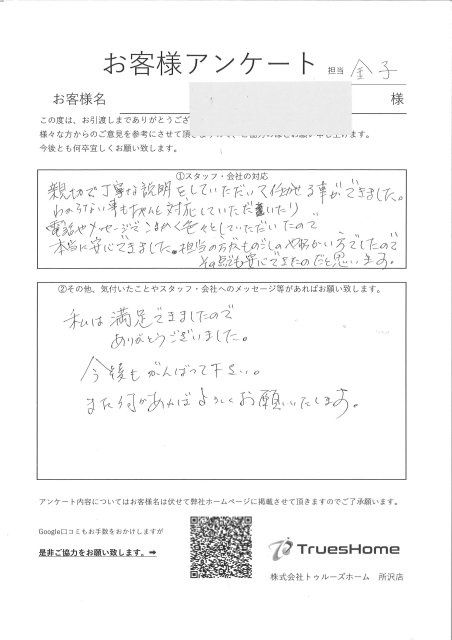 お客様アンケート 担当 金子
お客様名 様
この度は、お引渡しまでありがとうござ
様々な方からのご意見を参考にさせて頂き
今後とも何卒宜しくお願い致します。
①スタッフ・会社の対応
親切で丁寧な説明をしていただいて任せる事ができました。
わからない事もちゃんと対応していただいたり
電話やメッセージでこまめに色々としていただいたので
本当に安心できました。担当の方もものごしのやわらかい方でしたので
その点も安心できたのだと思います。
②その他、気付いたことやスタッフ・会社へのメッセージ等があればお願い致します。
私は満足できましたので
ありがとうございました。
今後もがんばって下さい。
また何かあればよろしくお願いいたします。
アンケート内容についてはお客様名は伏せて弊社ホームページに掲載させて頂きますのでご了承願います。
Google口コミもお手数をおかけしますが
是非ご協力をお願い致します。➡
TruesHome
株式会社トゥルーズホーム 所沢店